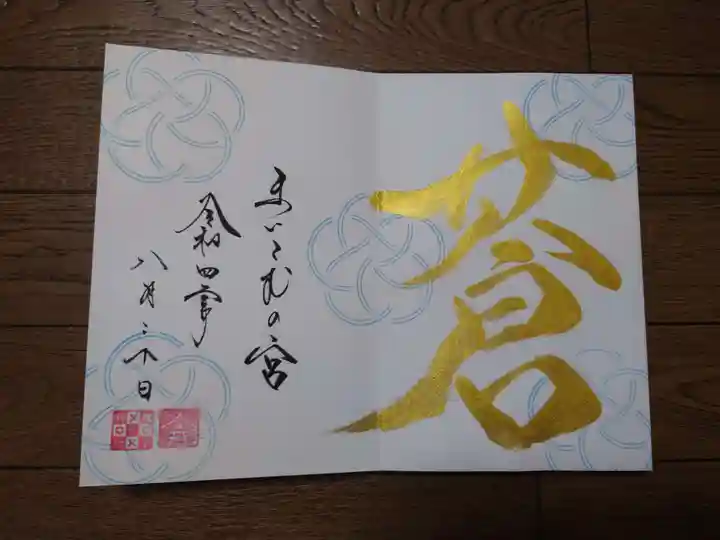 蒼
まいこむの宮
令和四年
八月三十日